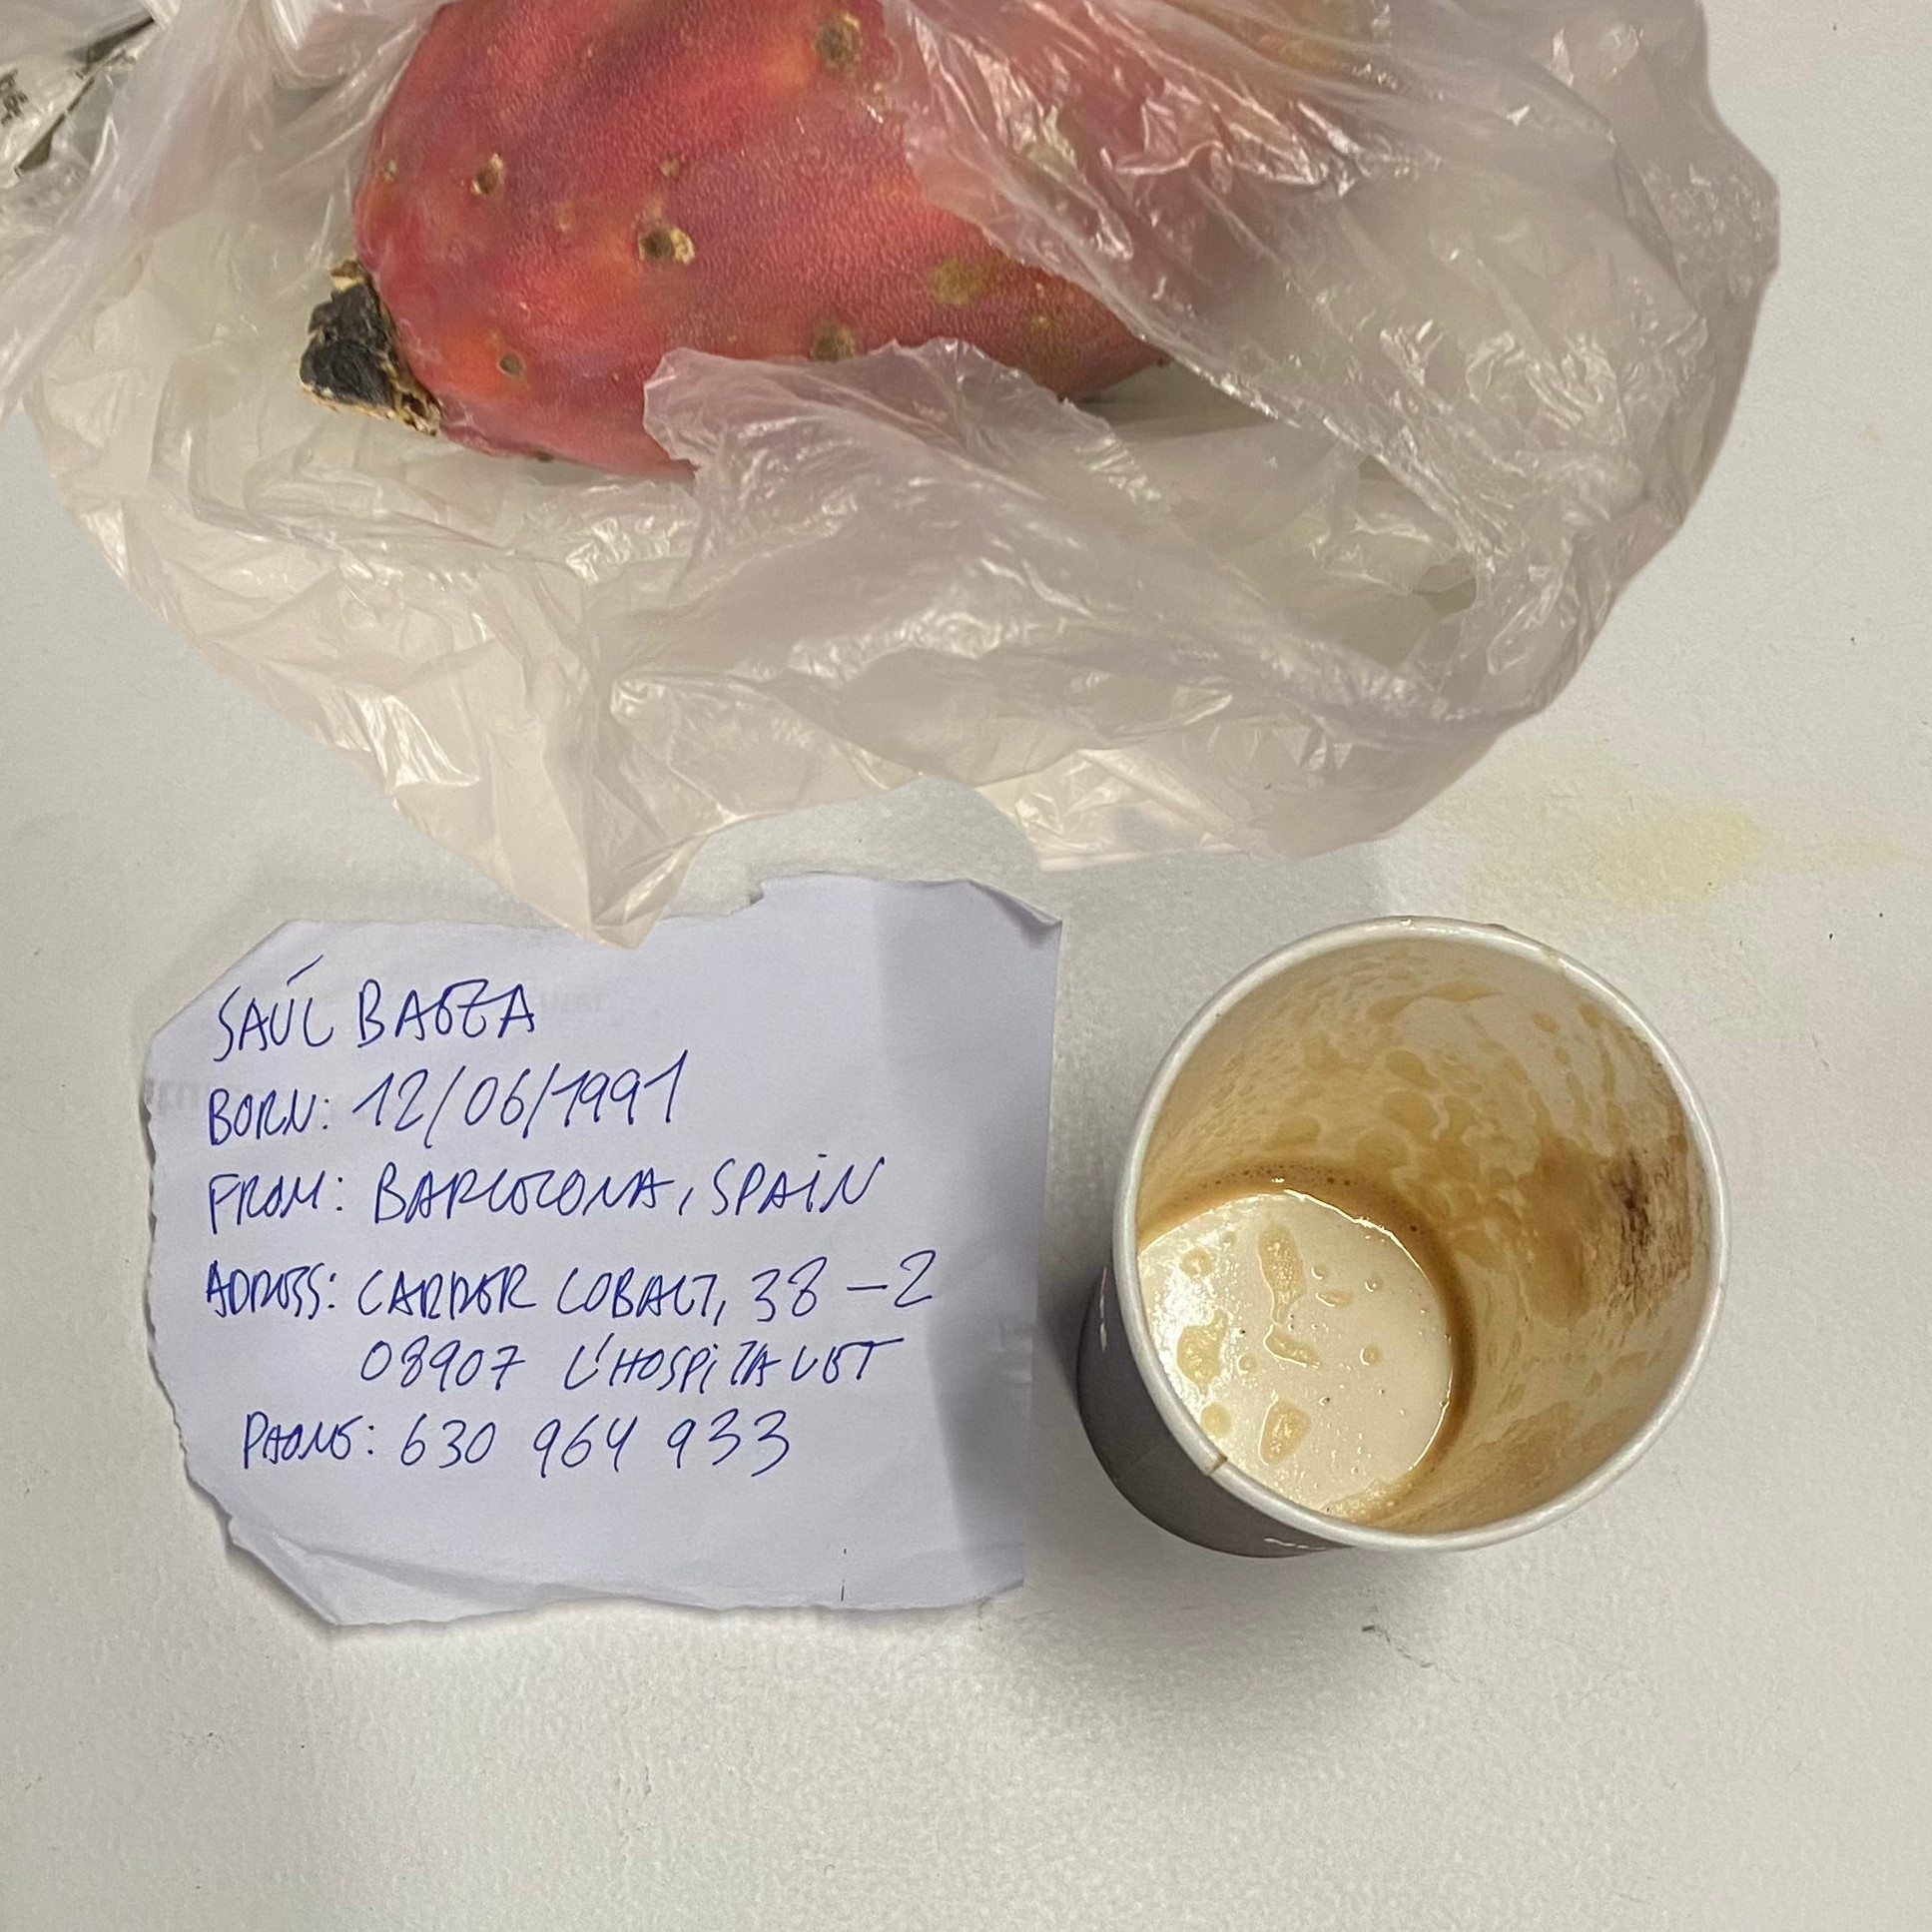 SAÚL BAEZA
BORN: 12/06/1991
FROM: BARCELONA, SPAIN
ADRESS: CARRER COBALT, 38-2
08907 L'HOSPITALET
PHONE: 630 964 933